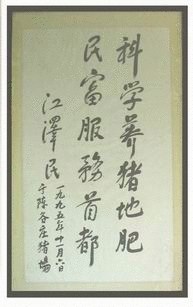 科学养猪地肥
民富服務首都
江澤民
一九九五年十一月六日
于陈各庄猪場